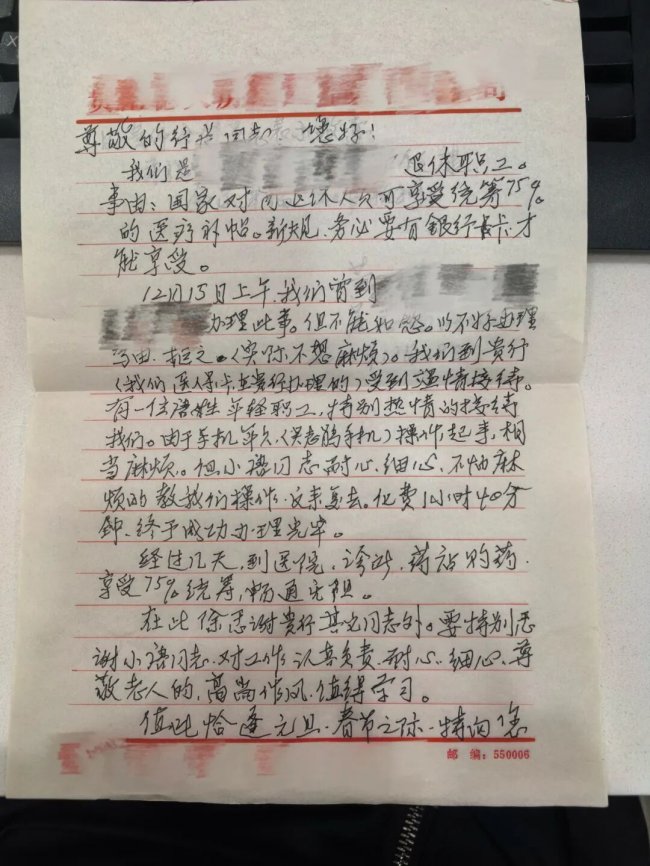 司
尊敬的行长同志 您好!
我们是 退休职工。
事由:国家对 退休人员可享受统筹75%
的医疗补帖。新规.务必要有銀行卡才
能享受。
12月15日上午.我们曾到
办理此事。但不能如愿。以不好办理
为由.拒之。(实际不想麻烦)。我们到贵行
(我们医保卡在贵行办理的)受到热情接待。
有一位 姓年轻职工,特别热情的接待
我们。由于手机年久,(是老龄手机)操作起来,相
当麻烦。但小 同志耐心.细心.不怕麻
烦的教我们操作.反来复去。化费1小时40分
鈡.终于成功办理完毕。
经过几天,到医院.诊所.药站购药.
享受75%统筹,畅通无阻。
在此除感谢贵行其它同志外。要特别感
谢小 同志.对工作认真负责.耐心.细心.尊
敬老人的.高尚作风.值得学习。
值此恰逢元旦.春节之际.特向您
邮 编:550006